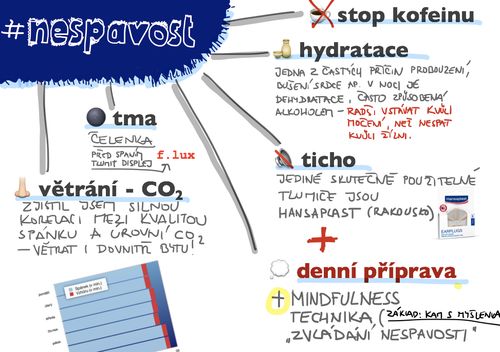 #nespavost
stop kofeinu
hydratace
JEDNA Z ČASTÝCH PŘÍČIN PROBOUZENÍ,
BUŠENÍ SRDCE AP. V NOCI JE
DEHYDRATACE, ČASTO ZPŮSOBENÁ
ALKOHOLEM - RADŠI VSTÁVAT KVŮLI
MOČENÍ, NEŽ NESPAT
KVŮLI ŽÍZNI.
tma
ČELENKA
PŘED SPANÍM
TLUMIT DISPLEJ
f.lux
ticho
JEDINÉ SKUTEČNĚ POUŽITELNÉ
TLUMIČE JSOU
HANSAPLAST (RAKOUSKO)
Hansaplast
EARPLUGS
větrání - CO₂
ZJISTIL JSEM SILNOU
KORELACI MEZI KVALITOU
SPÁNKU A ÚROVNÍ CO₂
— VĚTRAT I DOVNITŘ BYTU!
+
denní příprava
MINDFULNESS
TECHNIKA (ZÁKLAD: KAM S MYŠLENKA
„ZVLÁDÁNÍ NESPAVOSTI"